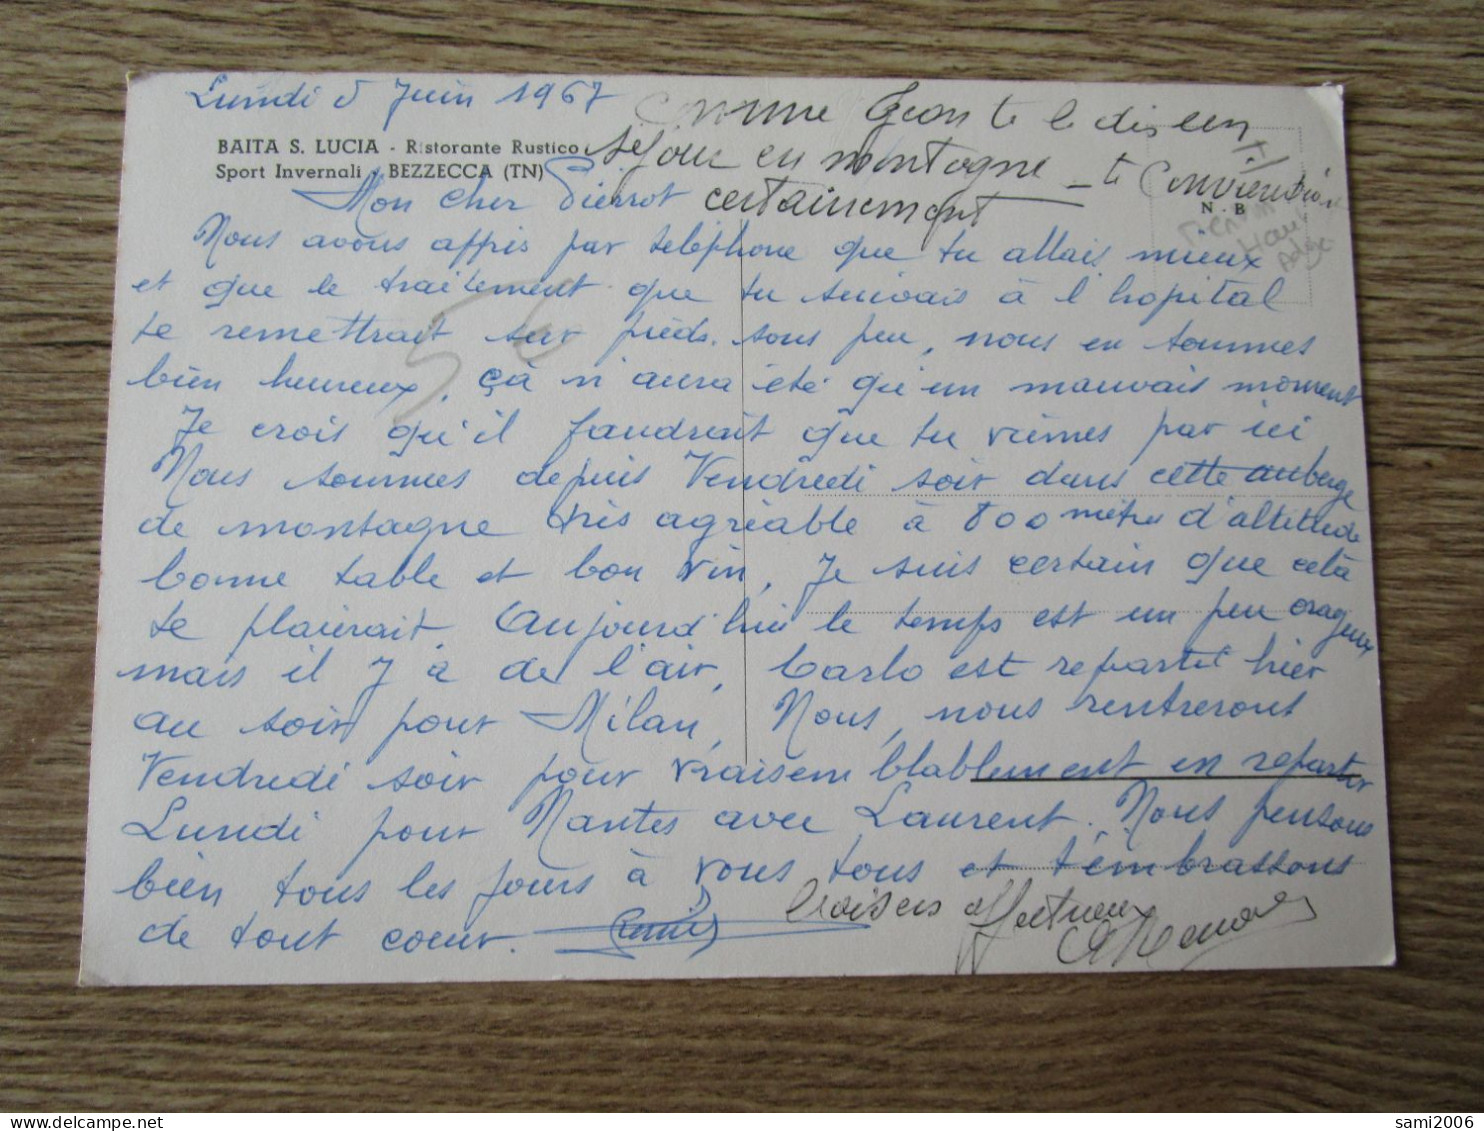 Lundi 5 Juin 1967
Comme Léon te le dis un
séjour en montagne te conviendrait
certainement
BAITA S. LUCIA - Ristorante Rustico
Sport Invernali - BEZZECCA (TN)
N. B
Mon cher Pierrot
Nous avons appris par telephone que tu allais mieux
et que le traitement que tu suivais à l hopital
te remettrait sur pieds sous peu, nous en sommes
bien heureux, çà n'aura été qu'un mauvais moment
Je crois qu'il faudrait que tu viennes par ici
Nous sommes depuis Vendredi soir dans cette auberge
de montagne très agréable à 800 mètres d'altitude
bonne table et bon vin, Je suis certain que celà
te plairait. Aujourd'hui le temps est un peu orageux
mais il y à de l'air, Carlo est repartit hier
au soir pour Milan, Nous, nous rentrerons
Vendredi soir pour vraisemblablement en repartir
Lundi pour Nantes avec Laurent. Nous pensons
bien tous les jours à vous tous et t'embrassons
de tout coeur.
baisers affectueux
5€
sami2006